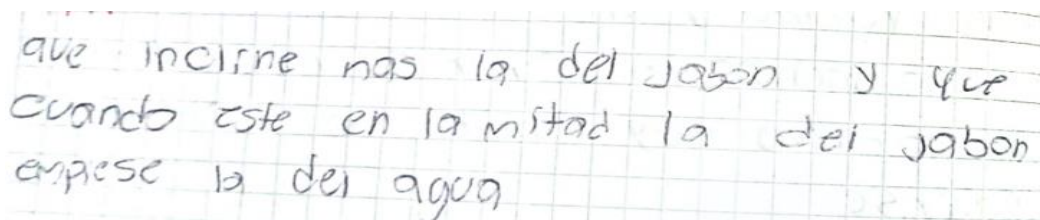 que incirne nas la del jabon y que
cuando este en la mitad la del jabon
empese la del agua